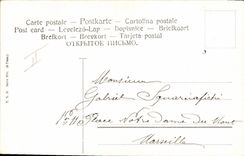 Carte postale — Postkarte — Cartolina postale
Post card — Levelező-Lap — Dopisnice — Briefkaart
Brefkort — Brevkort — Tarjeta postal
ОТКРЫТОЕ ПИСЬМО.
Monsieur
Gabriel
Place Notre Dame du Mont
Marseille